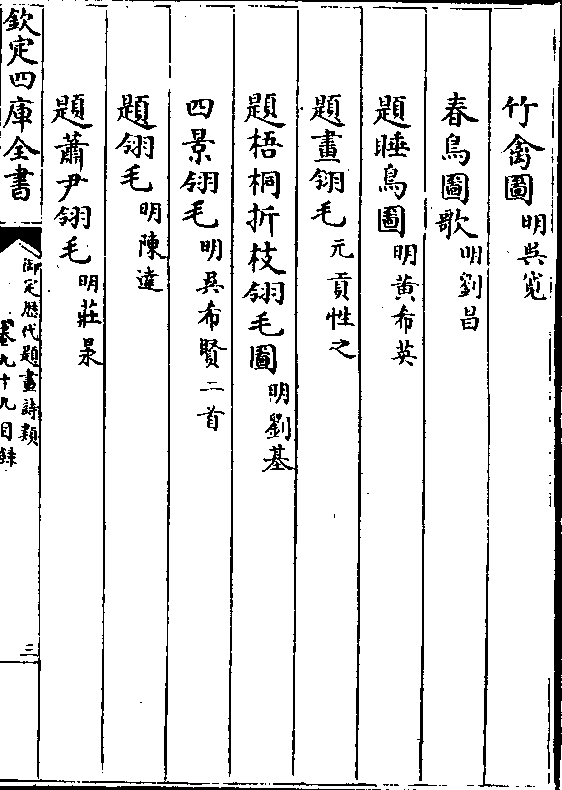 竹禽圖 明吳寛
春鳥圖歌 明劉昌
題睡鳥圖 明黄希英
題畫翎毛 元貢性之
題梧桐折枝翎毛圖 明劉基
四景翎毛 明吳希賢二首
題翎毛 明陳逵
題蕭尹翎毛 明莊㫤
欽定四庫全書
御定歷代題畫詩類
卷九十九目錄
三